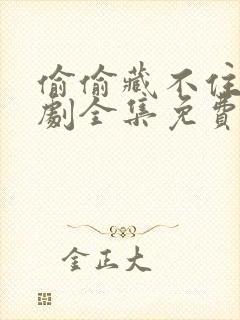 偷偷藏不住
劇全集免費
金正大